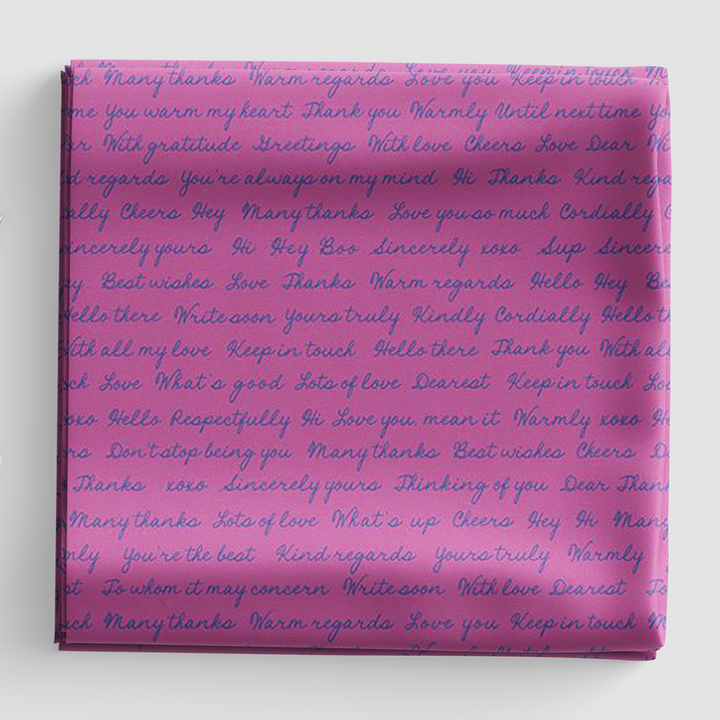 Many thanks Warm regards Love you Keep in touch
You warm my heart Thank you Warmly Until next time
With gratitude Greetings With love Cheers Love Dear
regards You're always on my mind Hi Thanks Kind
Cheers Hey Many thanks Love you so much Cordially
Sincerely yours Hi Hey Boo Sincerely xoxo Sup
Best wishes Love Thanks Warm regards Hello Hey
Hello there Write soon Yours truly Kindly Cordially
With all my love Keep in touch Hello there Thank you With all
Love What's good Lots of love Dearest Keep in touch
xoxo Hello Respectfully Hi Love you, mean it Warmly xoxo
Don't stop being you Many thanks Best wishes Cheers
Thanks xoxo Sincerely yours Thinking of you Dear
Many thanks Lots of love What's up Cheers Hey Hi Many
You're the best Kind regards Yours truly Warmly
To whom it may concern Write soon With love Dearest To
Many thanks Warm regards Love you Keep in touch